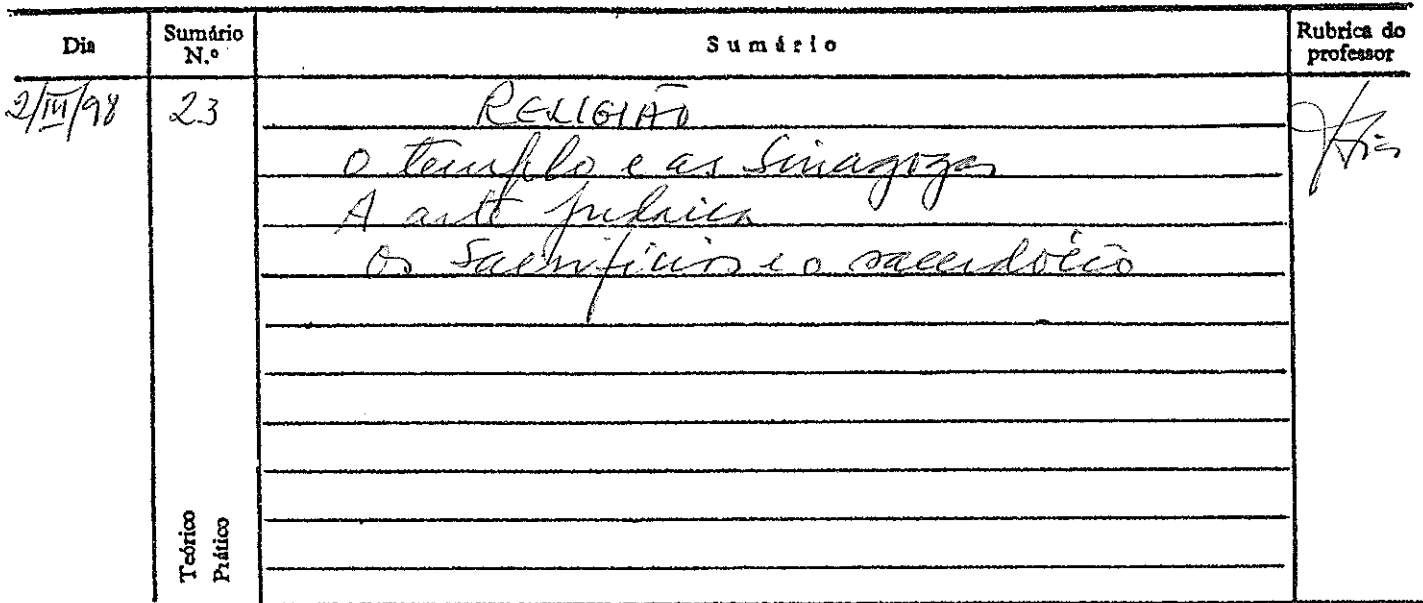 Dia Sumário N.º Sumário Rubrica do professor
2/III/98 23 RELIGIÃO
O templo e as Sinagogas
A arte judaica
Os Sacrifícios e o sacerdócio
Teórico
Prático